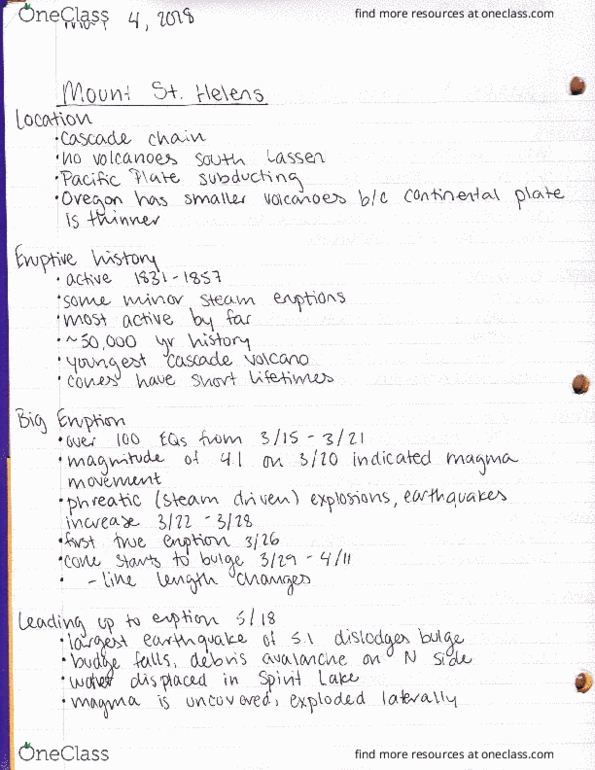 OneClass
find more resources at oneclass.com
4, 2018
Mount St. Helens
Location
• Cascade chain
• no volcanoes south Lassen
• Pacific Plate subducting
• Oregon has smaller volcanoes b/c continental plate
is thinner
Eruptive history
• active 1831-1857
• some minor steam eruptions
• most active by far
• ~50,000 yr history
• youngest cascade volcano
• cones have short lifetimes
Big Eruption
• over 100 EQs from 3/15 - 3/21
• magnitude of 4.1 on 3/20 indicated magma
movement
• phreatic (steam driven) explosions, earthquakes
increase 3/22 - 3/28
• first true eruption 3/26
• cone starts to bulge 3/29 - 4/11
• - line length changes
Leading up to eruption 5/18
• largest earthquake of 5.1 dislodges bulge
• budge falls, debris avalanche on N side
• water displaced in Spirit Lake
• magma is uncovered, exploded laterally
OneClass
find more resources at oneclass.com